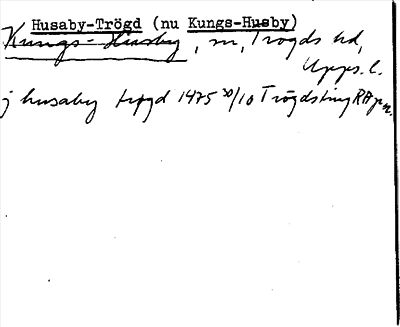 Husaby-Trögd (nu Kungs-Husby)
Kungs-Husby, sn, Trögds hd,
Upps. l.
j husaby trøgd 1475 20/10 Trögdsting RAp n.